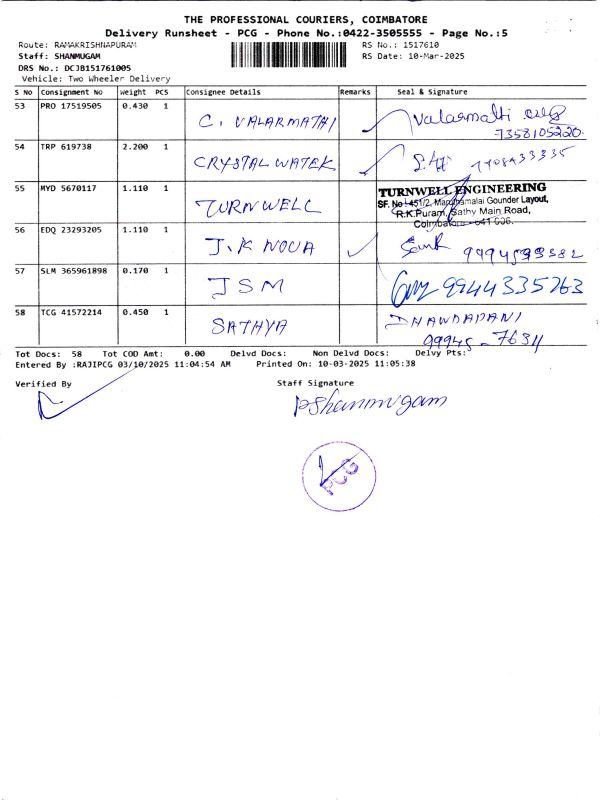 THE PROFESSIONAL COURIERS, COIMBATORE
Delivery Runsheet - PCG - Phone No.:0422-3505555 - Page No.:5
Route: RAMAKRISHNAPURAM RS No.: 1517610
Staff: SHANMUGAM RS Date: 10-Mar-2025
DRS No.: DCJB151761005
Vehicle: Two Wheeler Delivery
S No Consignment No Weight PCS Consignee Details Remarks Seal & Signature
53 PRO 17519505 0.430 1 C. VALARMATHI Valarmathi
7358105220
54 TRP 619738 2.200 1 CRYSTAL WATER
55 MYD 5670117 1.110 1 TURNWELL TURNWELL ENGINEERING
SF. No : 451/2, Maruthamalai Gounder Layout,
R.K.Puram, Sathy Main Road,
Coimbatore - 641 006.
56 EDQ 23293205 1.110 1 J.K NOVA
57 SLM 365961898 0.170 1 JSM 9944335263
58 TCG 41572214 0.450 1 SATHYA DHANDAPANI
99945-7634
Tot Docs: 58 Tot COD Amt: 0.00 Delvd Docs: Non Delvd Docs: Delvy Pts:
Entered By :RAJIPCG 03/10/2025 11:04:54 AM Printed On: 10-03-2025 11:05:38
Verified By Staff Signature
PShanmugam
PCG